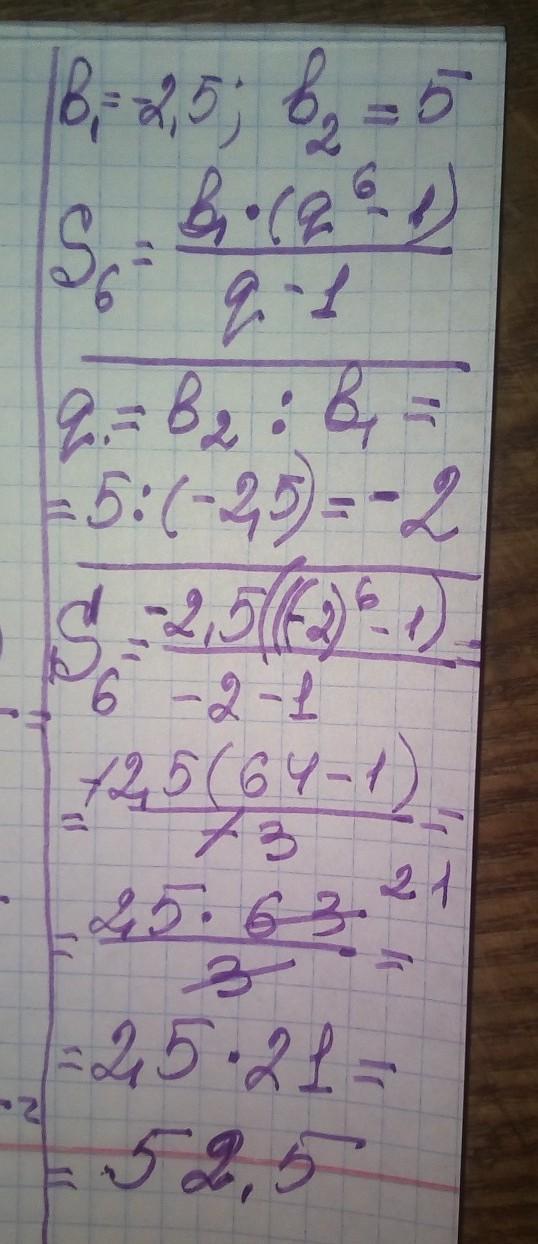 b₁ = -2,5; b₂ = 5
S₆ = b₁·(q⁶-1) / q-1
q = b₂ : b₁ =
= 5:(-2,5) = -2
S₆ = -2,5(((-2)⁶-1) / -2-1 =
= -2,5(64-1) / -3 =
= 2,5·63 21 / 3 =
= 2,5·21 =
= 52,5